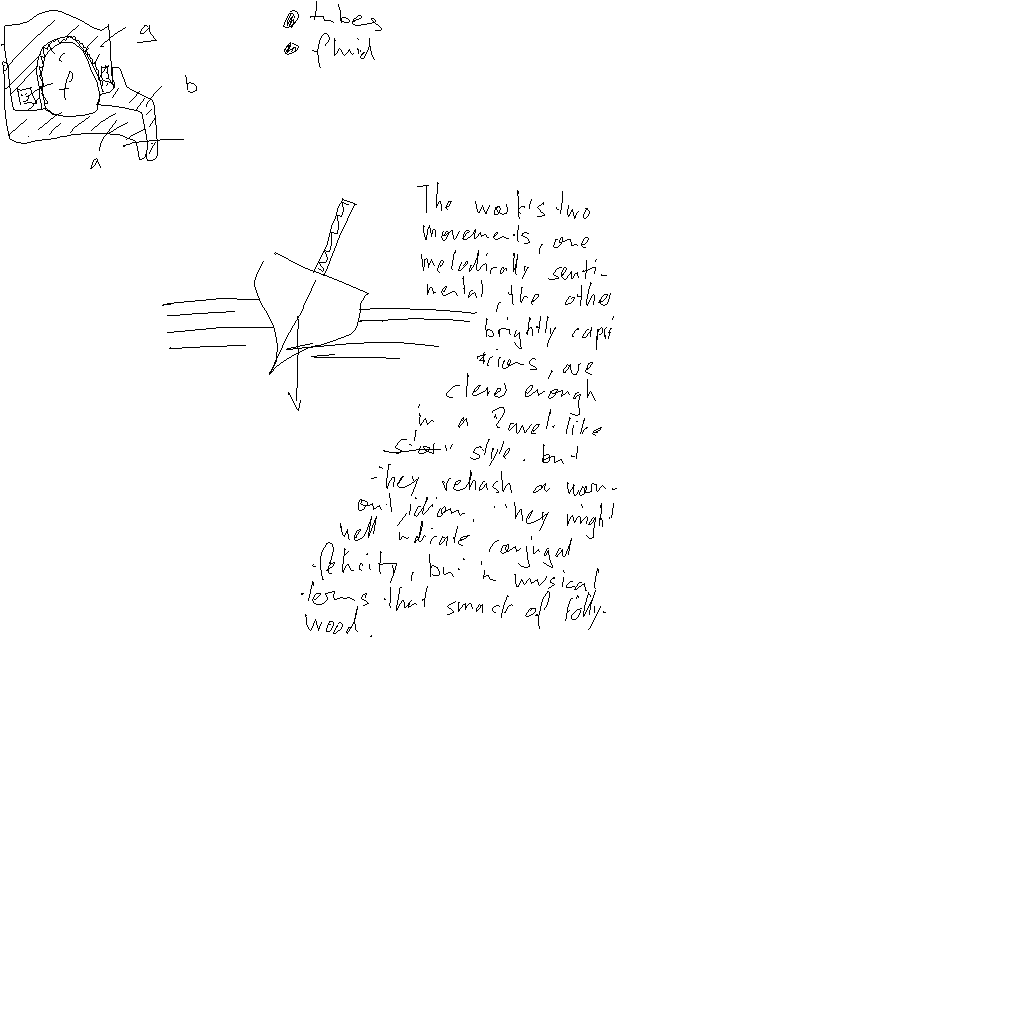 tubes
fluid
g
c
f
b
a
The work's two
movements, one
melodically senti-
mental, the other
brightly capri
cious, are
clever enough
in a Ravel-like
style. but
they rehash a worn-
out idiom. They might
well indicate conjugal
felicity, but in musical
terms that smack of Folly-
wood.